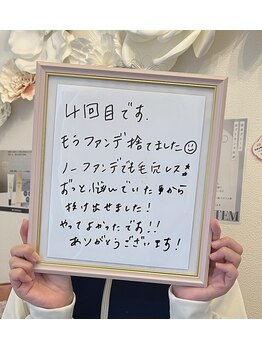 4回目です.
もうファンデ捨てました☺
ノーファンデでも毛穴レス!
ずっと、悩んでいた事から
抜け出せました!
やってよかったです!!
ありがとうございます!
TEM